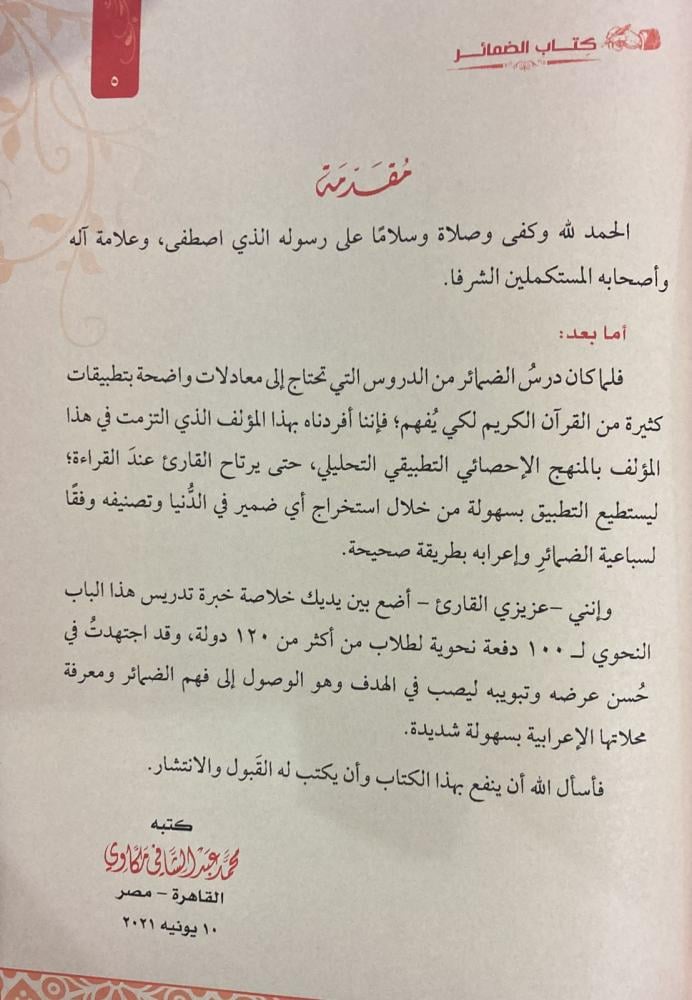 كتاب الضمائر
٥
مُقَدّمَة
الحمد لله وكفى وصلاة وسلامًا على رسوله الذي اصطفى، وعلامة آله
وأصحابه المستكملين الشرفا.
أما بعد:
فلما كان درسُ الضمائر من الدروس التي تحتاج إلى معادلات واضحة بتطبيقات
كثيرة من القرآن الكريم لكي يُفهم؛ فإننا أفردناه بهذا المؤلف الذي التزمت في هذا
المؤلف بالمنهج الإحصائي التطبيقي التحليلي، حتى يرتاح القارئ عندَ القراءة؛
ليستطيع التطبيق بسهولة من خلال استخراج أي ضمير في الدُّنيا وتصنيفه وفقًا
لسباعية الضمائرِ وإعرابه بطريقة صحيحة.
وإنني -عزيزي القارئ- أضع بين يديك خلاصة خبرة تدريس هذا الباب
النحوي لـ ١٠٠ دفعة نحوية لطلاب من أكثر من ١٢٠ دولة، وقد اجتهدتُ في
حُسن عرضه وتبويبه ليصب في الهدف وهو الوصول إلى فهم الضمائر ومعرفة
محلاتها الإعرابية بسهولة شديدة.
فأسأل الله أن ينفع بهذا الكتاب وأن يكتب له القَبول والانتشار.
كتبه
محمد عبد الشافي مكاوي
القاهرة - مصر
١٠ يونيه ٢٠٢١